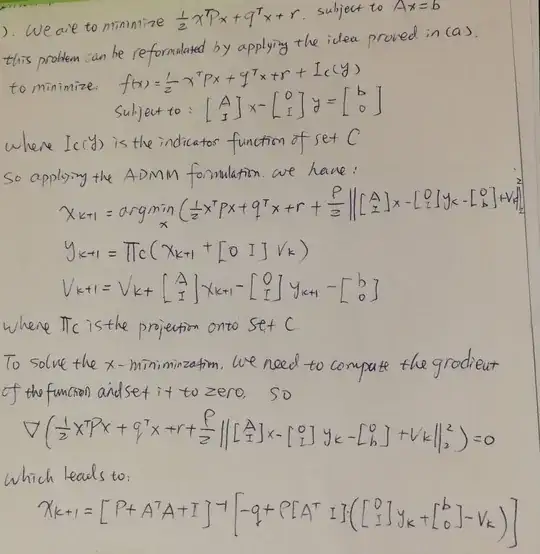 ). We are to minimize ½xᵀPx+qᵀx+r. subject to Ax=b
this problem can be reformulated by applying the idea proved in (a).
to minimize. f(x)=½xᵀPx+qᵀx+r+Ic(y)
Subject to: [A I]x-[0 I]y=[b 0]
where Ic(y) is the indicator function of set C
So applying the ADMM formulation. we have:
Xk+1=argmin x (½xᵀPx+qᵀx+r+ρ/2||[A I]x-[0 I]yk-[0 b]+Vk||²₂
yk+1=Πc(Xk+1+[0 I]Vk)
Vk+1=Vk+[A I]Xk+1-[0 I]yk+1-[b 0]
where Πc is the projection onto set C
To solve the x-miniminzatim. We need to compute the grodient
of the function and set it to zero. so
∇(½xᵀPx+qᵀx+r+ρ/2||[A I]x-[0 I]yk-[0 b]+Vk||²₂)=0
which leads to:
Xk+1=[P+AᵀA+I]⁻¹[-q+ρ[Aᵀ I]·([0 I]yk+[b 0]-Vk)]